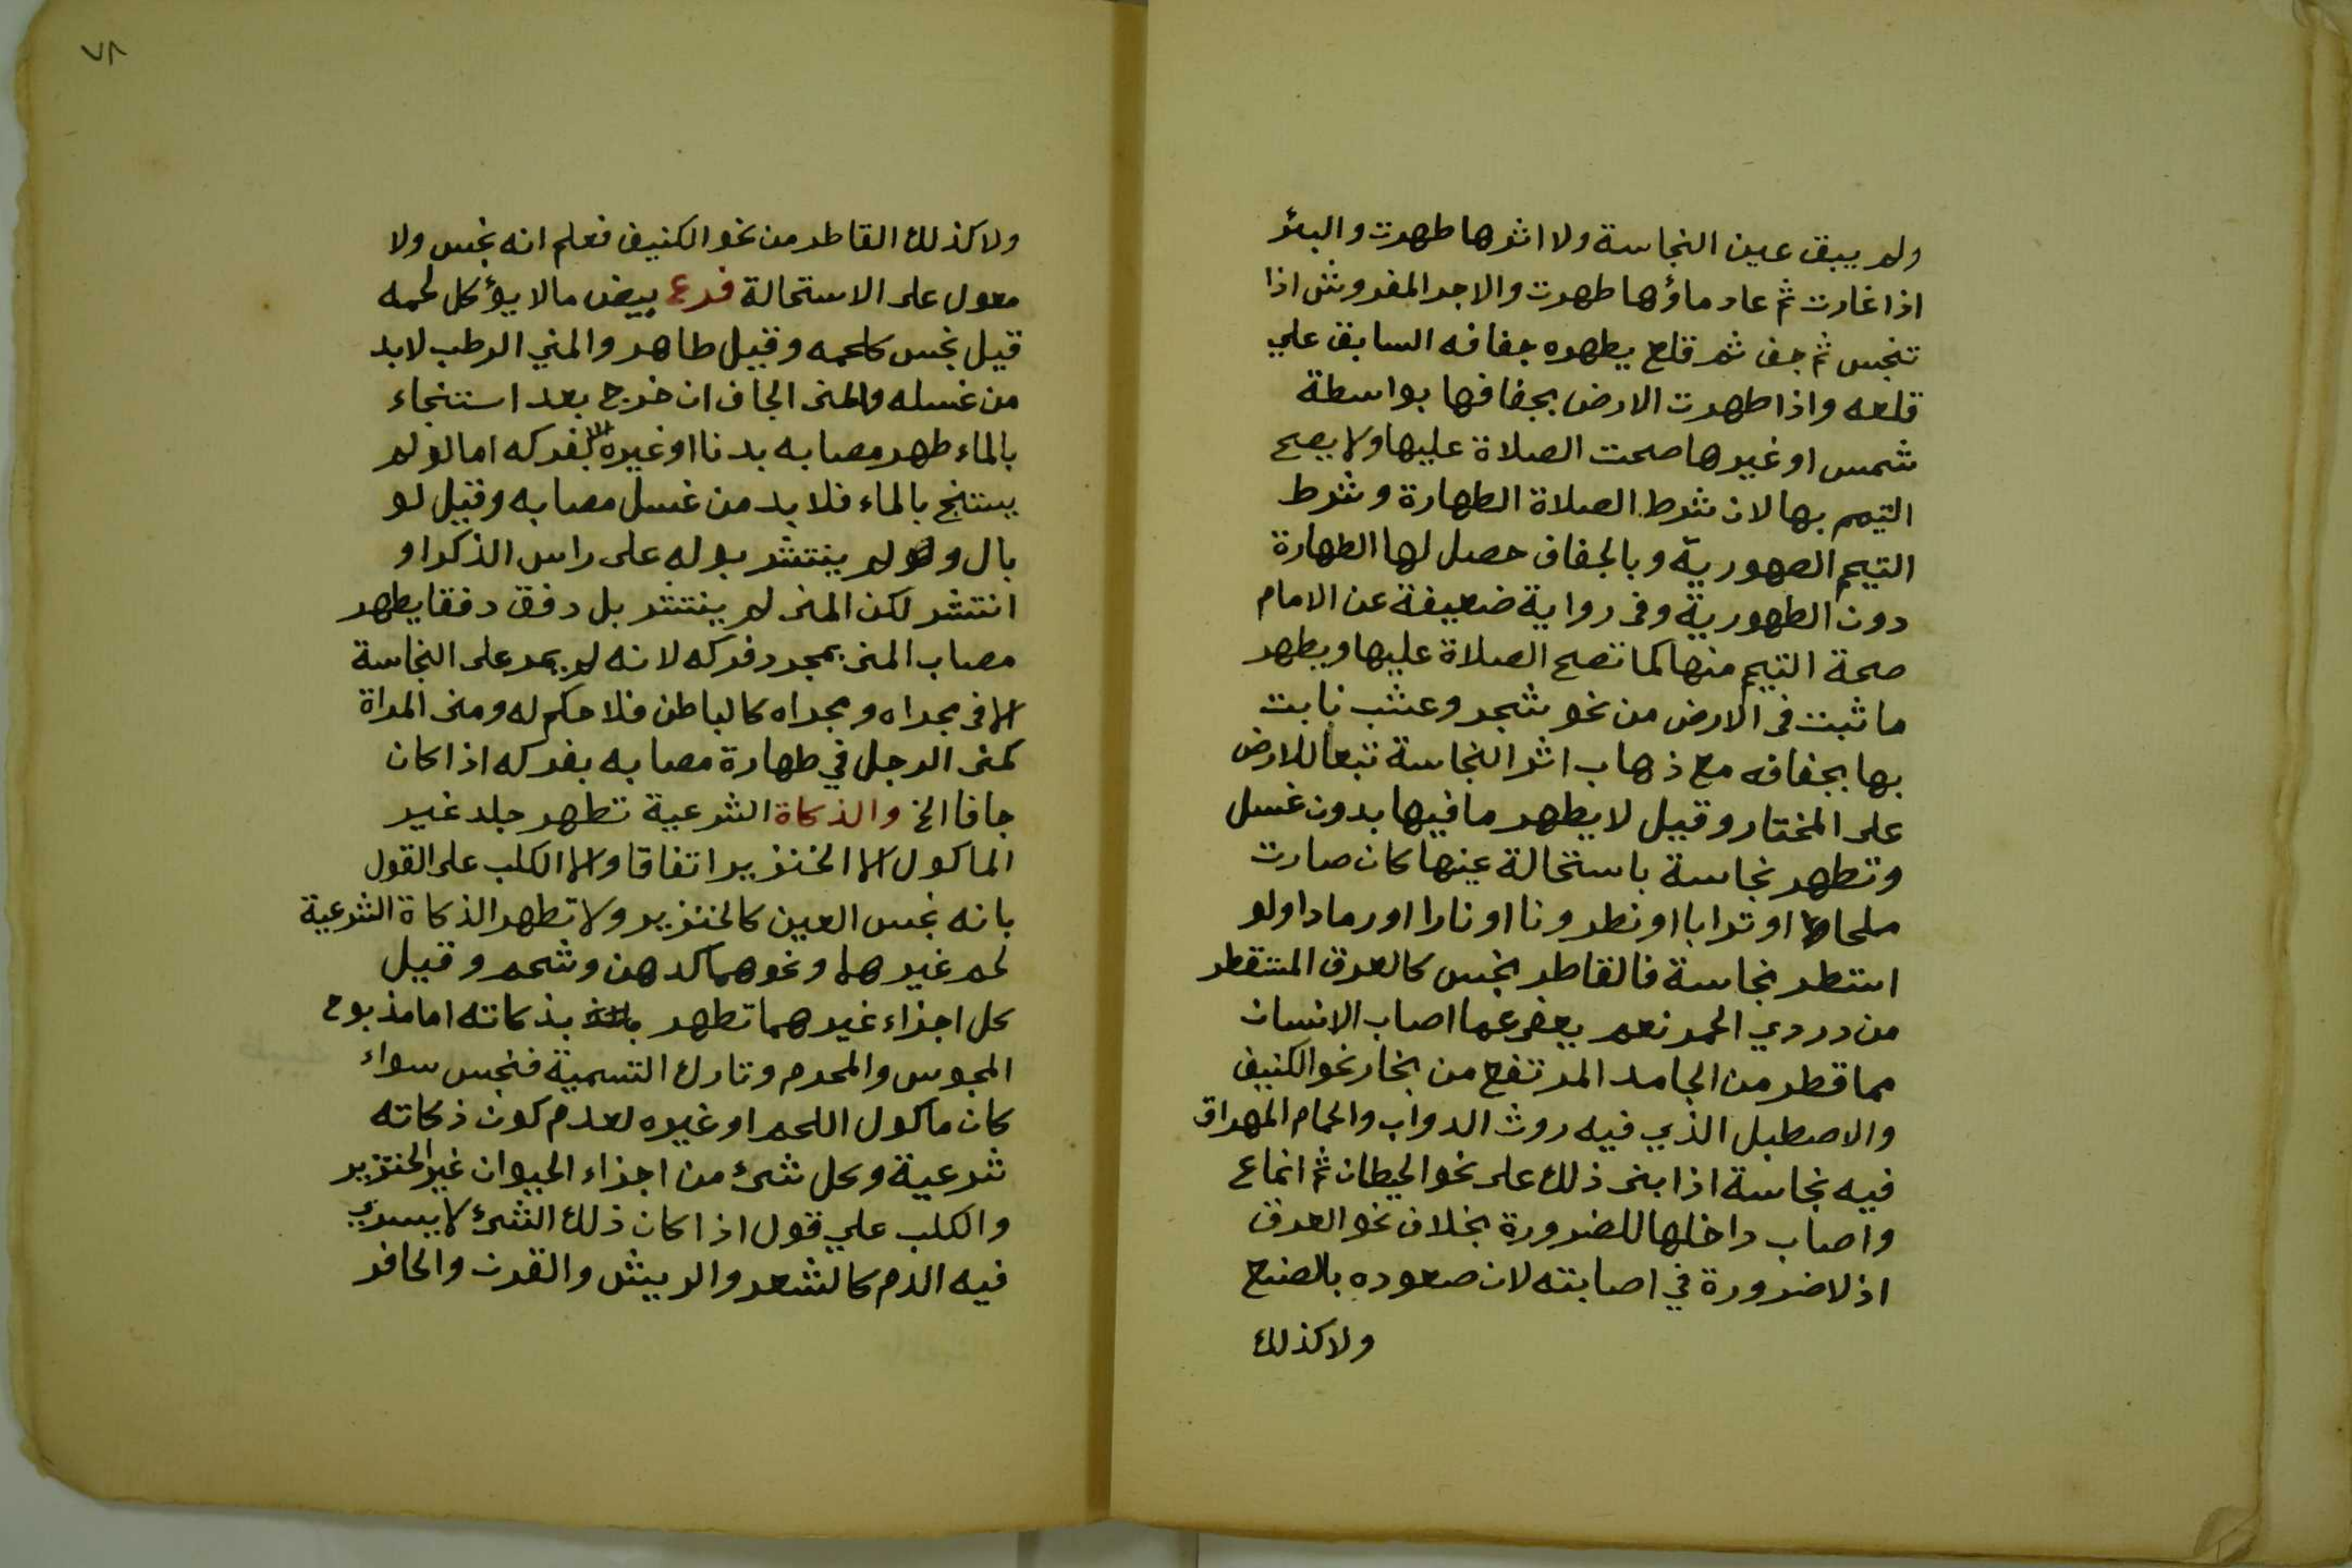 ولم يبق عين النجاسة ولا اثرها طهرت والبئر
اذا غارت ثم عاد ماؤها طهرت والاجر المفروش اذا
تنجس ثم جف ثم قلع يطهره جفافه السابق علي
قلعه واذا طهرت الارض بجفافها بواسطة
شمس او غيرها صحت الصلاة عليها ولا يصح
التيمم بها لان شرط الصلاة الطهارة وشرط
التيمم الطهورية وبالجفاف حصل لها الطهارة
دون الطهورية وفى رواية ضعيفة عن الامام
صحة التيمم منها كما تصح الصلاة عليها ويطهر
ما ثبت فى الارض من نحو شجر وعشب نابت
بها بجفافه مع ذهاب اثر النجاسة تبعا للارض
على المختار وقيل لا يطهر ما فيها بدون غسل
وتطهر نجاسة باستحالة عينها كان صارت
ملحا او ترابا او نطرونا او نارا او رمادا ولو
استقطر نجاسة فالقاطر نجس كالعرق المتقطر
من دردي الخمر نعم يعفى عما اصاب الانسان
مما قطر من الجامد المرتفع من بخار نحو الكنيف
والاصطبل الذي فيه روث الدواب والحمام المهراق
فيه نجاسة اذا بنى ذلك على نحو الحيطان ثم انماع
واصاب داخلها للضرورة بخلاف نحو العرق
اذ لا ضرورة في اصابته لان صعوده بالصنع
ولا كذلك
٧٨
ولا كذلك القاطر من نحو الكنيف فعلم انه نجس ولا
معول على الاستحالة فرع بيض ما لا يؤكل لحمه
قيل نجس كلحمه وقيل طاهر والمني الرطب لا بد
من غسله والمنى الجاف ان خرج بعد استنجاء
بالماء طهر مصابه بدنا او غيره بفركه اما لو لم
يستنج بالماء فلا بد من غسل مصابه وقيل لو
بال ولم ينتشر بوله على راس الذكر او
انتشر لكن المنى لم ينتشر بل دفق دفقا يطهر
مصاب المنى بمجرد فركه لانه لم يمر على النجاسة
الا فى مجراه ومجراه كالباطن فلا حكم له ومنى المراة
كمنى الرجل في طهارة مصابه بفركه اذا كان
جافا الخ والذكاة الشرعية تطهر جلد غير
الماكول الا الخنزير اتفاقا والا الكلب على القول
بانه نجس العين كالخنزير ولا تطهر الذكاة الشرعية
لحم غيرهما ونحوهما كدهن وشحم وقيل
كل اجزاء غيرهما تطهر بذكاته اما مذبوح
المجوس والمحرم وتارك التسمية فنجس سواء
كان ماكول اللحم او غيره لعدم كون ذكاته
شرعية وكل شئ من اجزاء الحيوان غير الخنزير
والكلب علي قول اذا كان ذلك الشئ لا يسري
فيه الدم كالشعر والريش والقرن والحافر